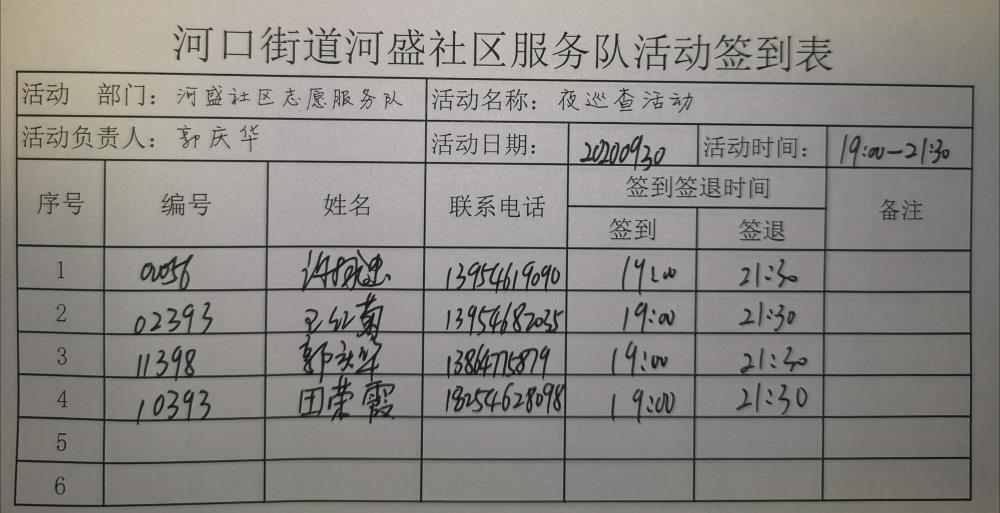 河口街道河盛社区服务队活动签到表
活动 部门：河盛社区志愿服务队 活动名称：夜巡查活动
活动负责人：郭庆华 活动日期：20200930 活动时间：19:00—21:30
序号 编号 姓名 联系电话 签到签退时间 备注
签到 签退
1 00056 13954619090 19:00 21:30
2 02393 王红菊 13954682035 19:00 21:30
3 11398 郭庆华 13864715879 19:00 21:30
4 10393 田荣霞 18254628098 19:00 21:30
5
6